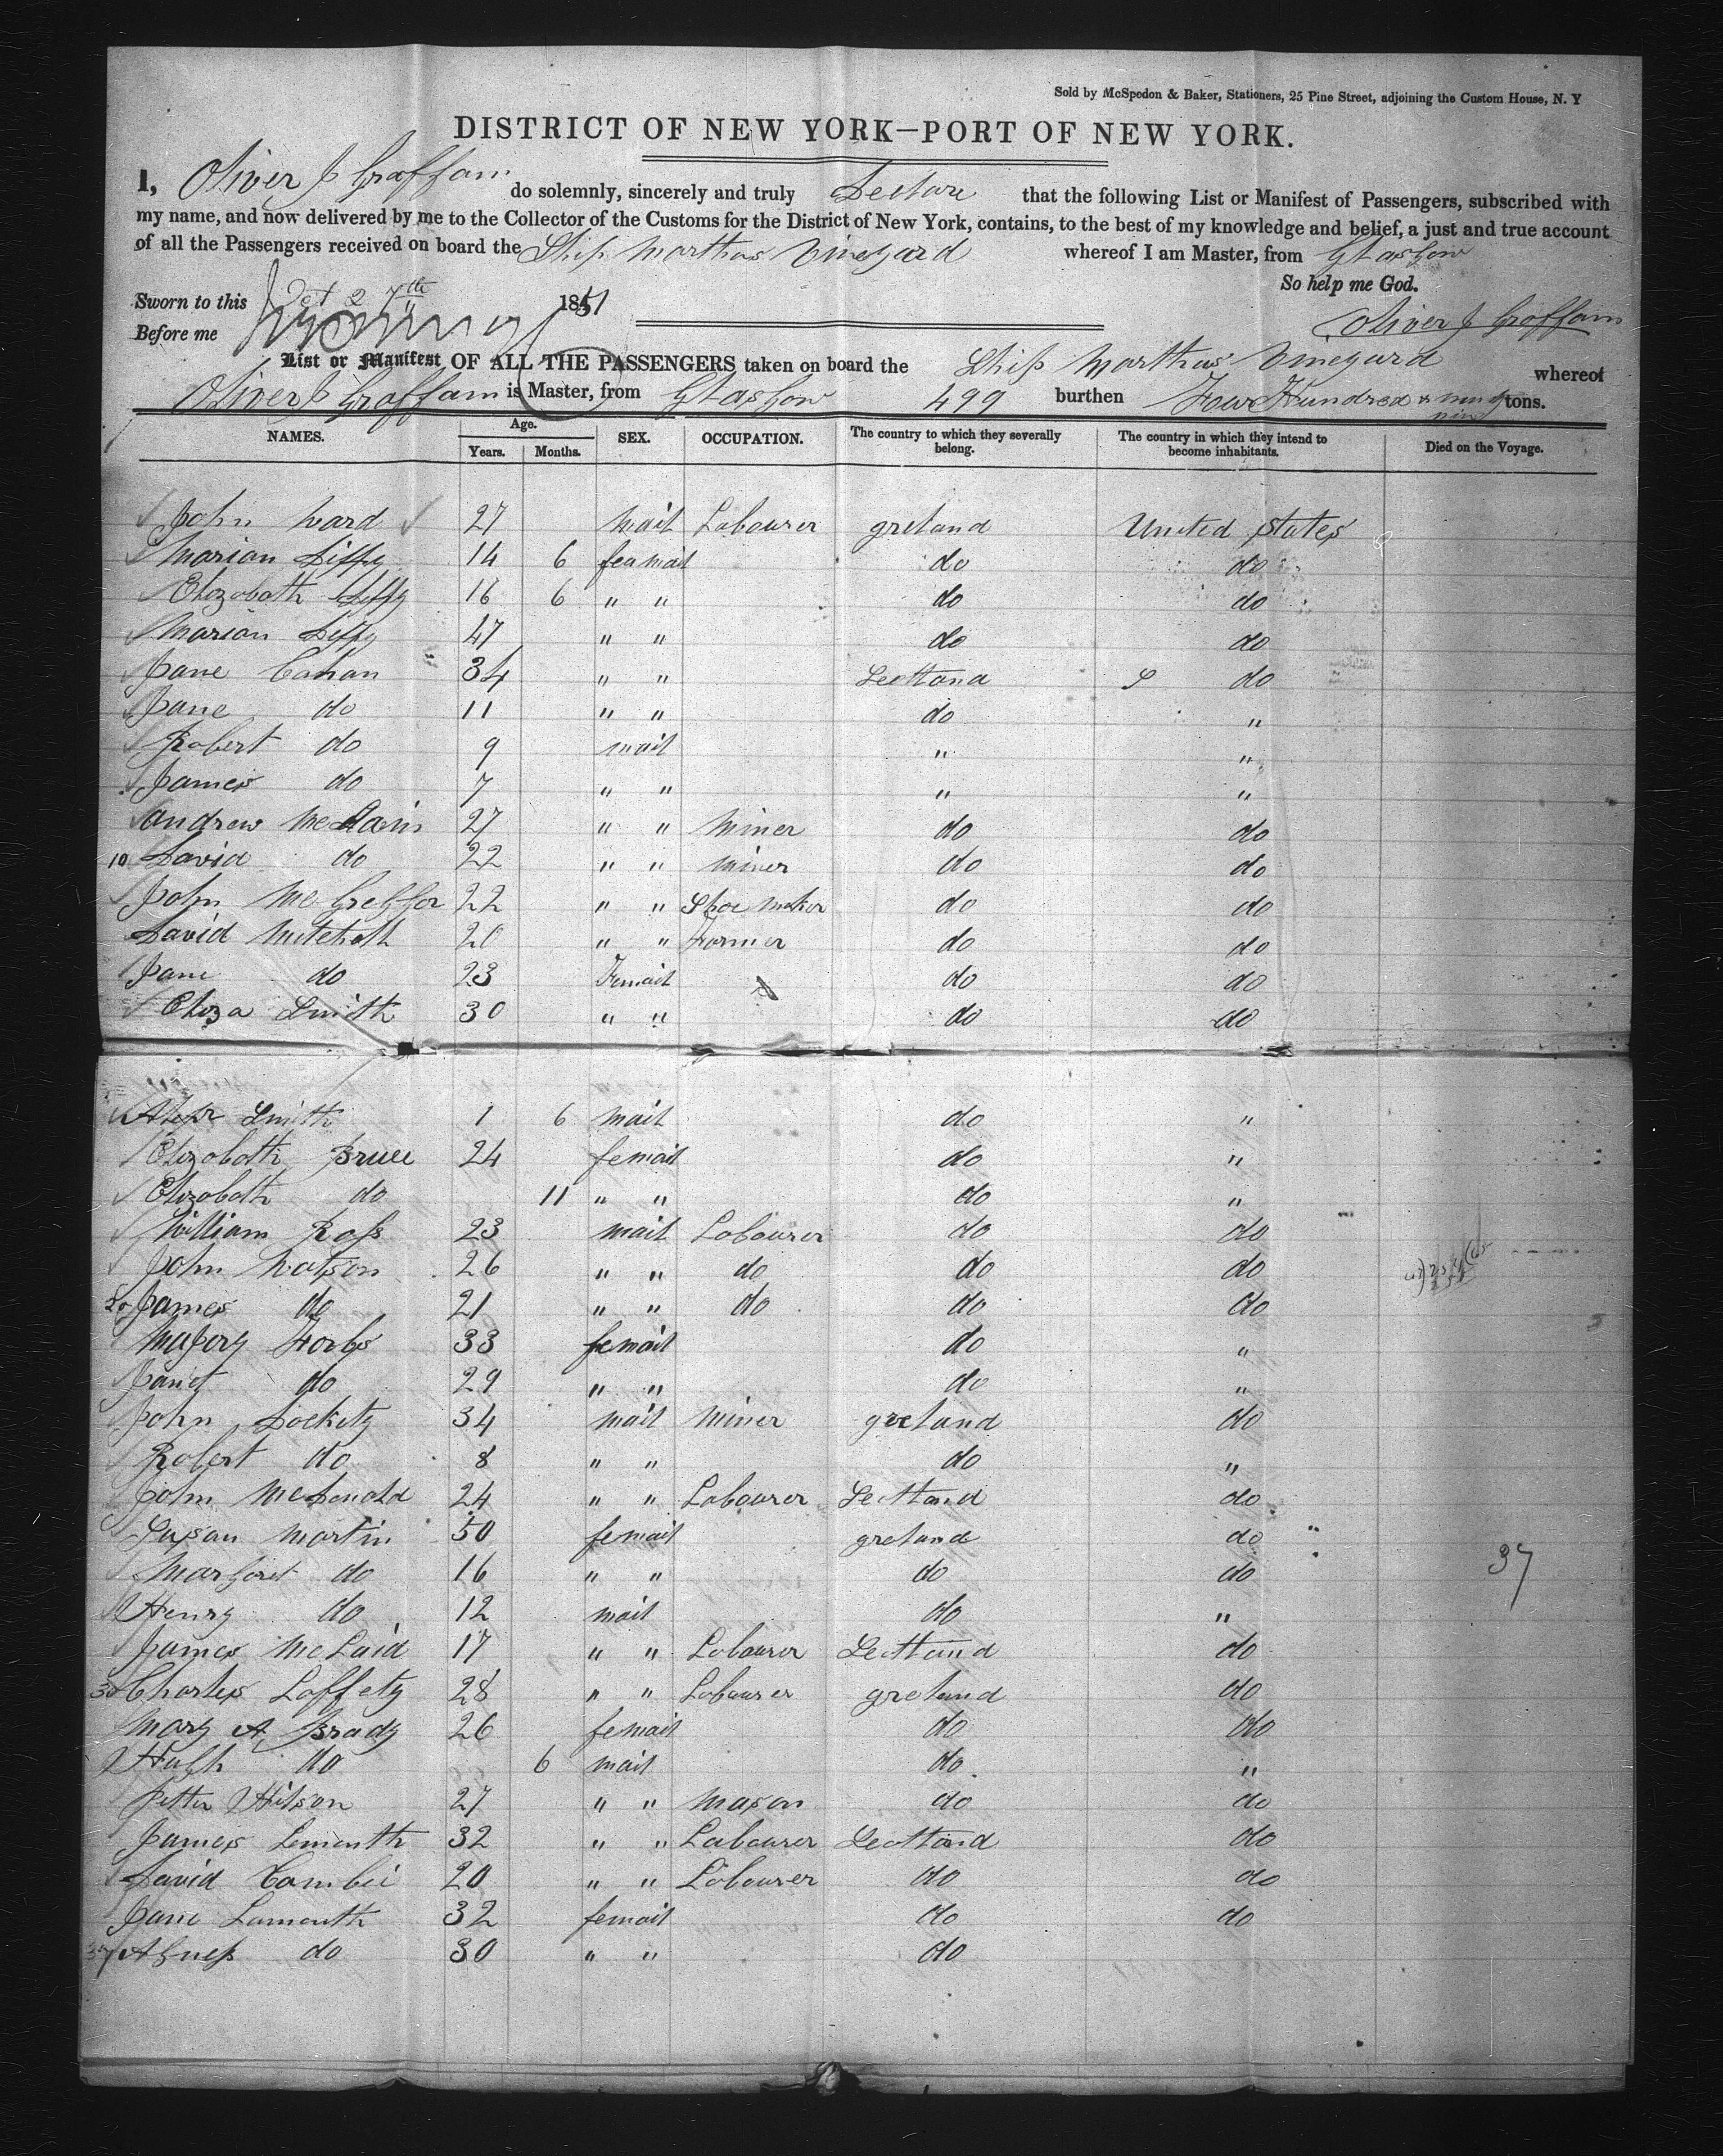 Sold by McSpedon & Baker, Stationers, 25 Pine Street, adjoining the Custom House, N. Y
DISTRICT OF NEW YORK—PORT OF NEW YORK.
I, Oliver J Graffam do solemnly, sincerely and truly Declare that the following List or Manifest of Passengers, subscribed with
my name, and now delivered by me to the Collector of the Customs for the District of New York, contains, to the best of my knowledge and belief, a just and true account
of all the Passengers received on board the Ship Marthas Vineyard whereof I am Master, from Glasgow
So help me God.
Sworn to this Oct 27th 1851
Before me
Oliver J Graffam
List or Manifest OF ALL THE PASSENGERS taken on board the Ship Marthas Vineyard whereof
Oliver J Graffam is Master, from Glasgow 499 burthen Four Hundred & ninety nine tons.
NAMES. Age. Years. Months. SEX. OCCUPATION. The country to which they severally belong. The country in which they intend to become inhabitants. Died on the Voyage.
John Ward 27 mail Labourer Ireland United States
Marian 14 6 feamail do do
Elizabath 16 6 " " do do
Marian 47 " " do do
Jane Cahan 34 " " Scotland do
Jane do 11 " " do "
Robert do 9 mail " "
James do 7 " " " "
Andrew 27 " " Miner do do
10 David do 22 " " miner do do
John McGreggor 22 " " Shoe maker do do
David Mitchell 20 " " Farmer do do
Jane do 23 Femail do do
Eliza Smith 30 " " do do
Alexr Smith 1 6 mail do "
Elizabath Bruce 24 femail do "
Elizabath do 11 " " do "
William Ross 23 mail Labourer do do
John Watson 26 " " do do do
20 James do 21 " " do do do
Majory Forbs 33 femail do "
Janet do 29 " " do "
John Dockety 34 mail Miner Ireland do
Robert do 8 " " do "
John McDonald 24 " " Labourer Scotland do
Susan Martin 50 femail Ireland do
Margaret do 16 " " do do
37
Henry do 12 mail do "
James McLaid 17 " " Labourer Scotland do
30 Charles Laffety 28 " " Labourer Ireland do
Mary A Brady 26 femail do do
Hugh do 6 mail do "
Petter Hitson 27 " " Mason do do
James Lemouth 32 " " Labourer Scotland do
David Cambie 20 " " Labourer do do
Jane Lamouth 32 femail do do
37 Agness do 30 " " do